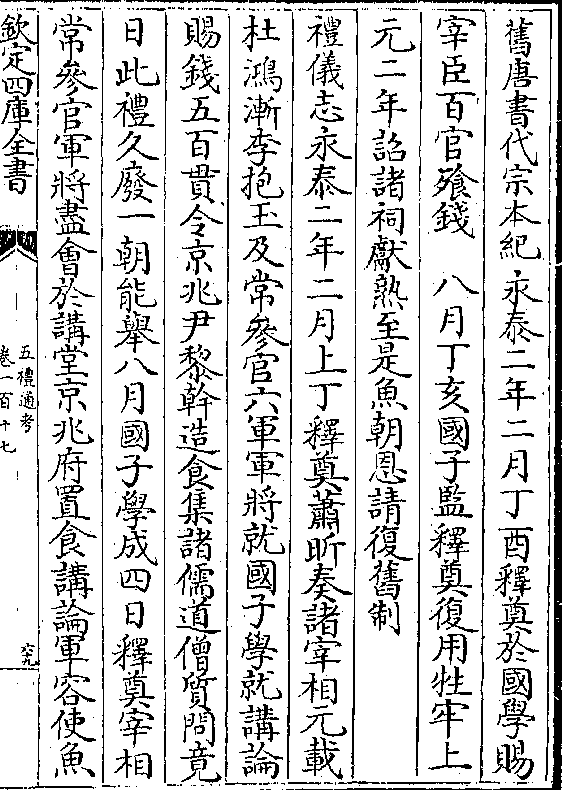 舊唐書代宗本紀永泰二年二月丁酉釋奠於國學賜
宰臣百官飱錢　八月丁亥國子監釋奠復用牲牢上
元二年詔諸祠獻熟至是魚朝恩請復舊制
禮儀志永泰二年二月上丁釋奠蕭昕奏諸宰相元載
杜鴻漸李抱玉及常參官六軍軍將就國子學就講論
賜錢五百貫令京兆尹黎幹造食集諸儒道僧質問竟
日此禮久廢一朝能舉八月國子學成四日釋奠宰相
常參官軍將盡會於講堂京兆府置食講論軍容使魚
欽定四庫全書
五禮通考
卷一百十七